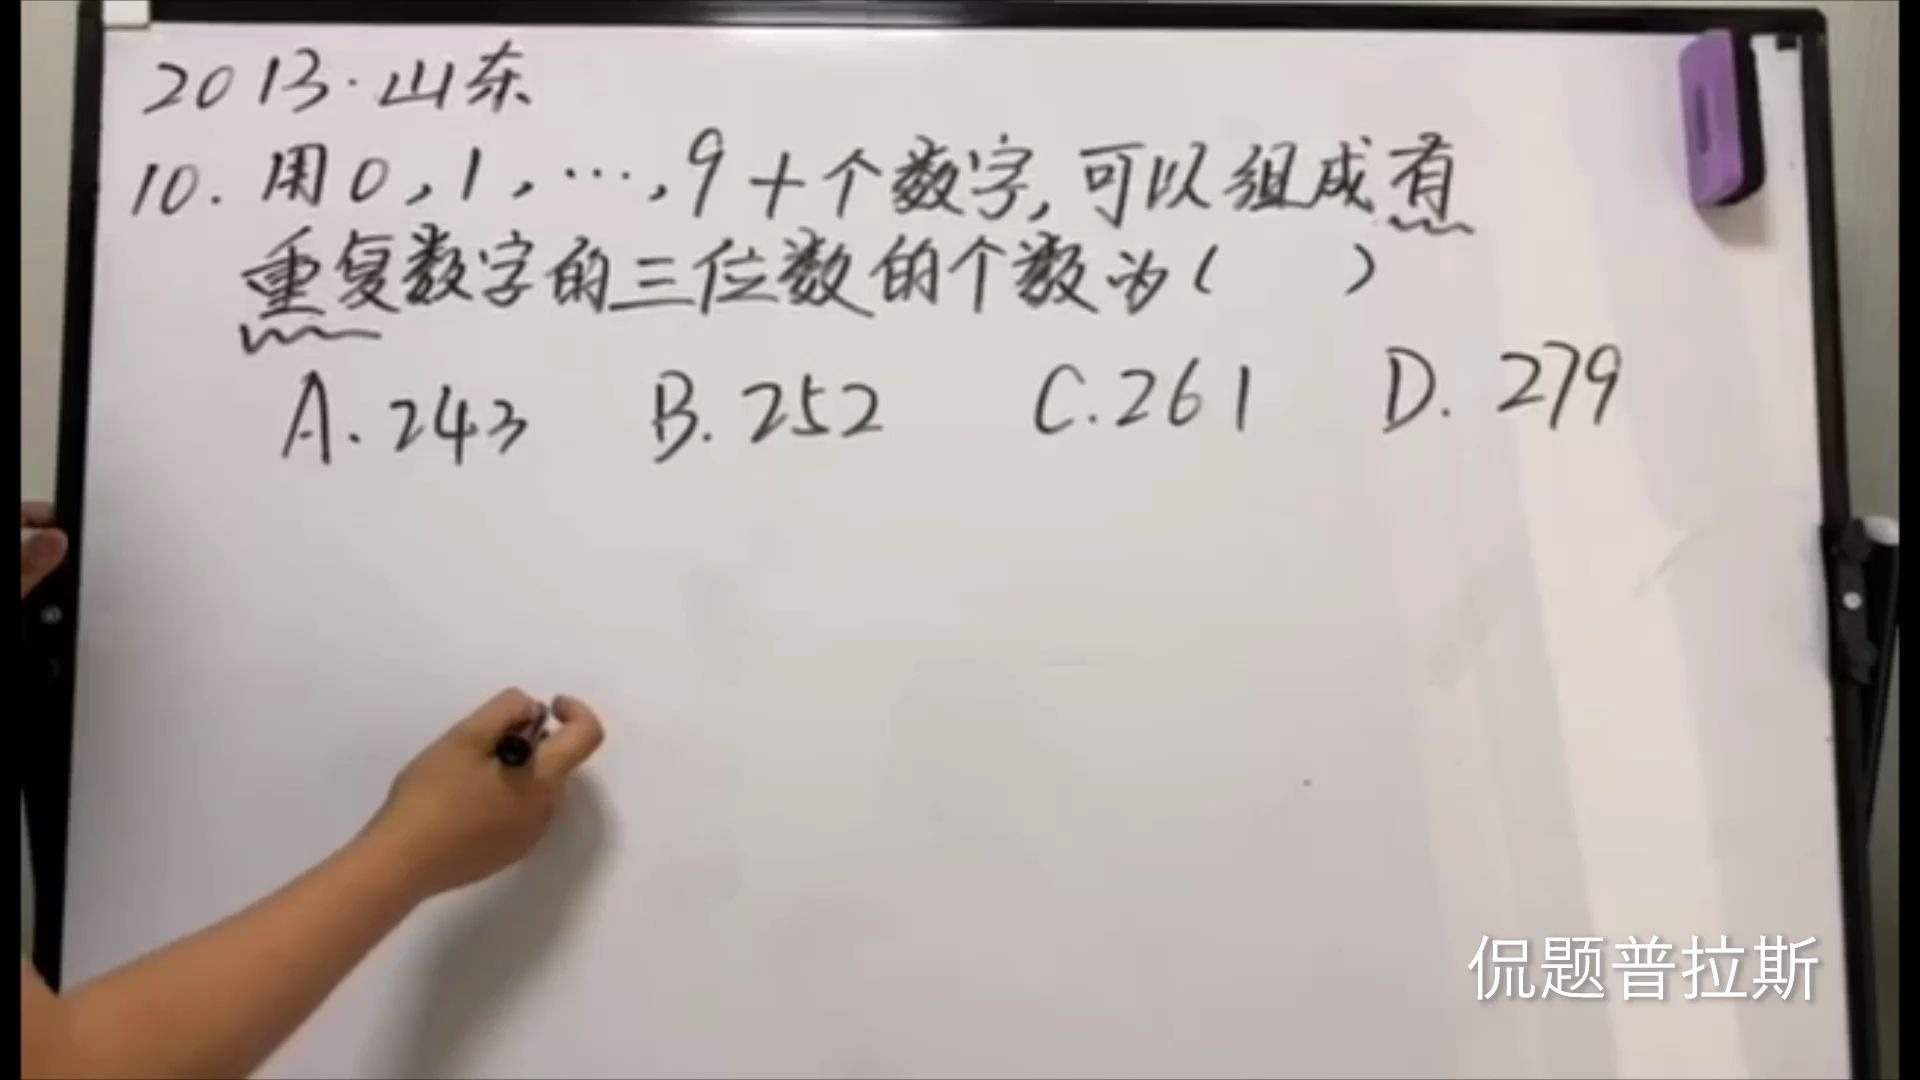 2013·山东
10. 用0,1,…,9十个数字,可以组成有
重复数字的三位数的个数为( )
A.243 B.252 C.261 D.279
侃题普拉斯